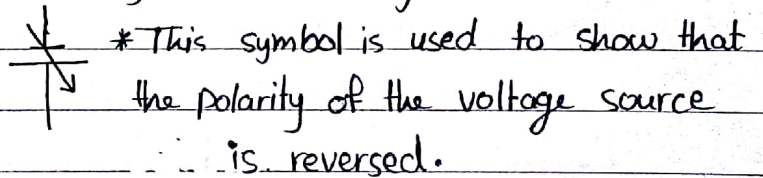 * This symbol is used to show that
the polarity of the voltage source
is reversed.